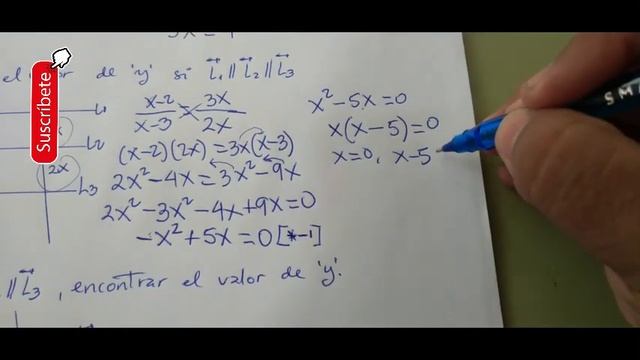 de 'y' si L₁ // L₂ // L₃
Suscríbete
L₁
L₂
2x
L₃
x-2/x-3 = 3x/2x
(x-2)(2x)=3x(x-3)
2x²-4x=3x²-9x
2x²-3x²-4x+9x=0
-x²+5x=0[*-1]
x²-5x=0
x(x-5)=0
x=0, x-5
// L₃, encontrar el valor de 'y'.
SMA